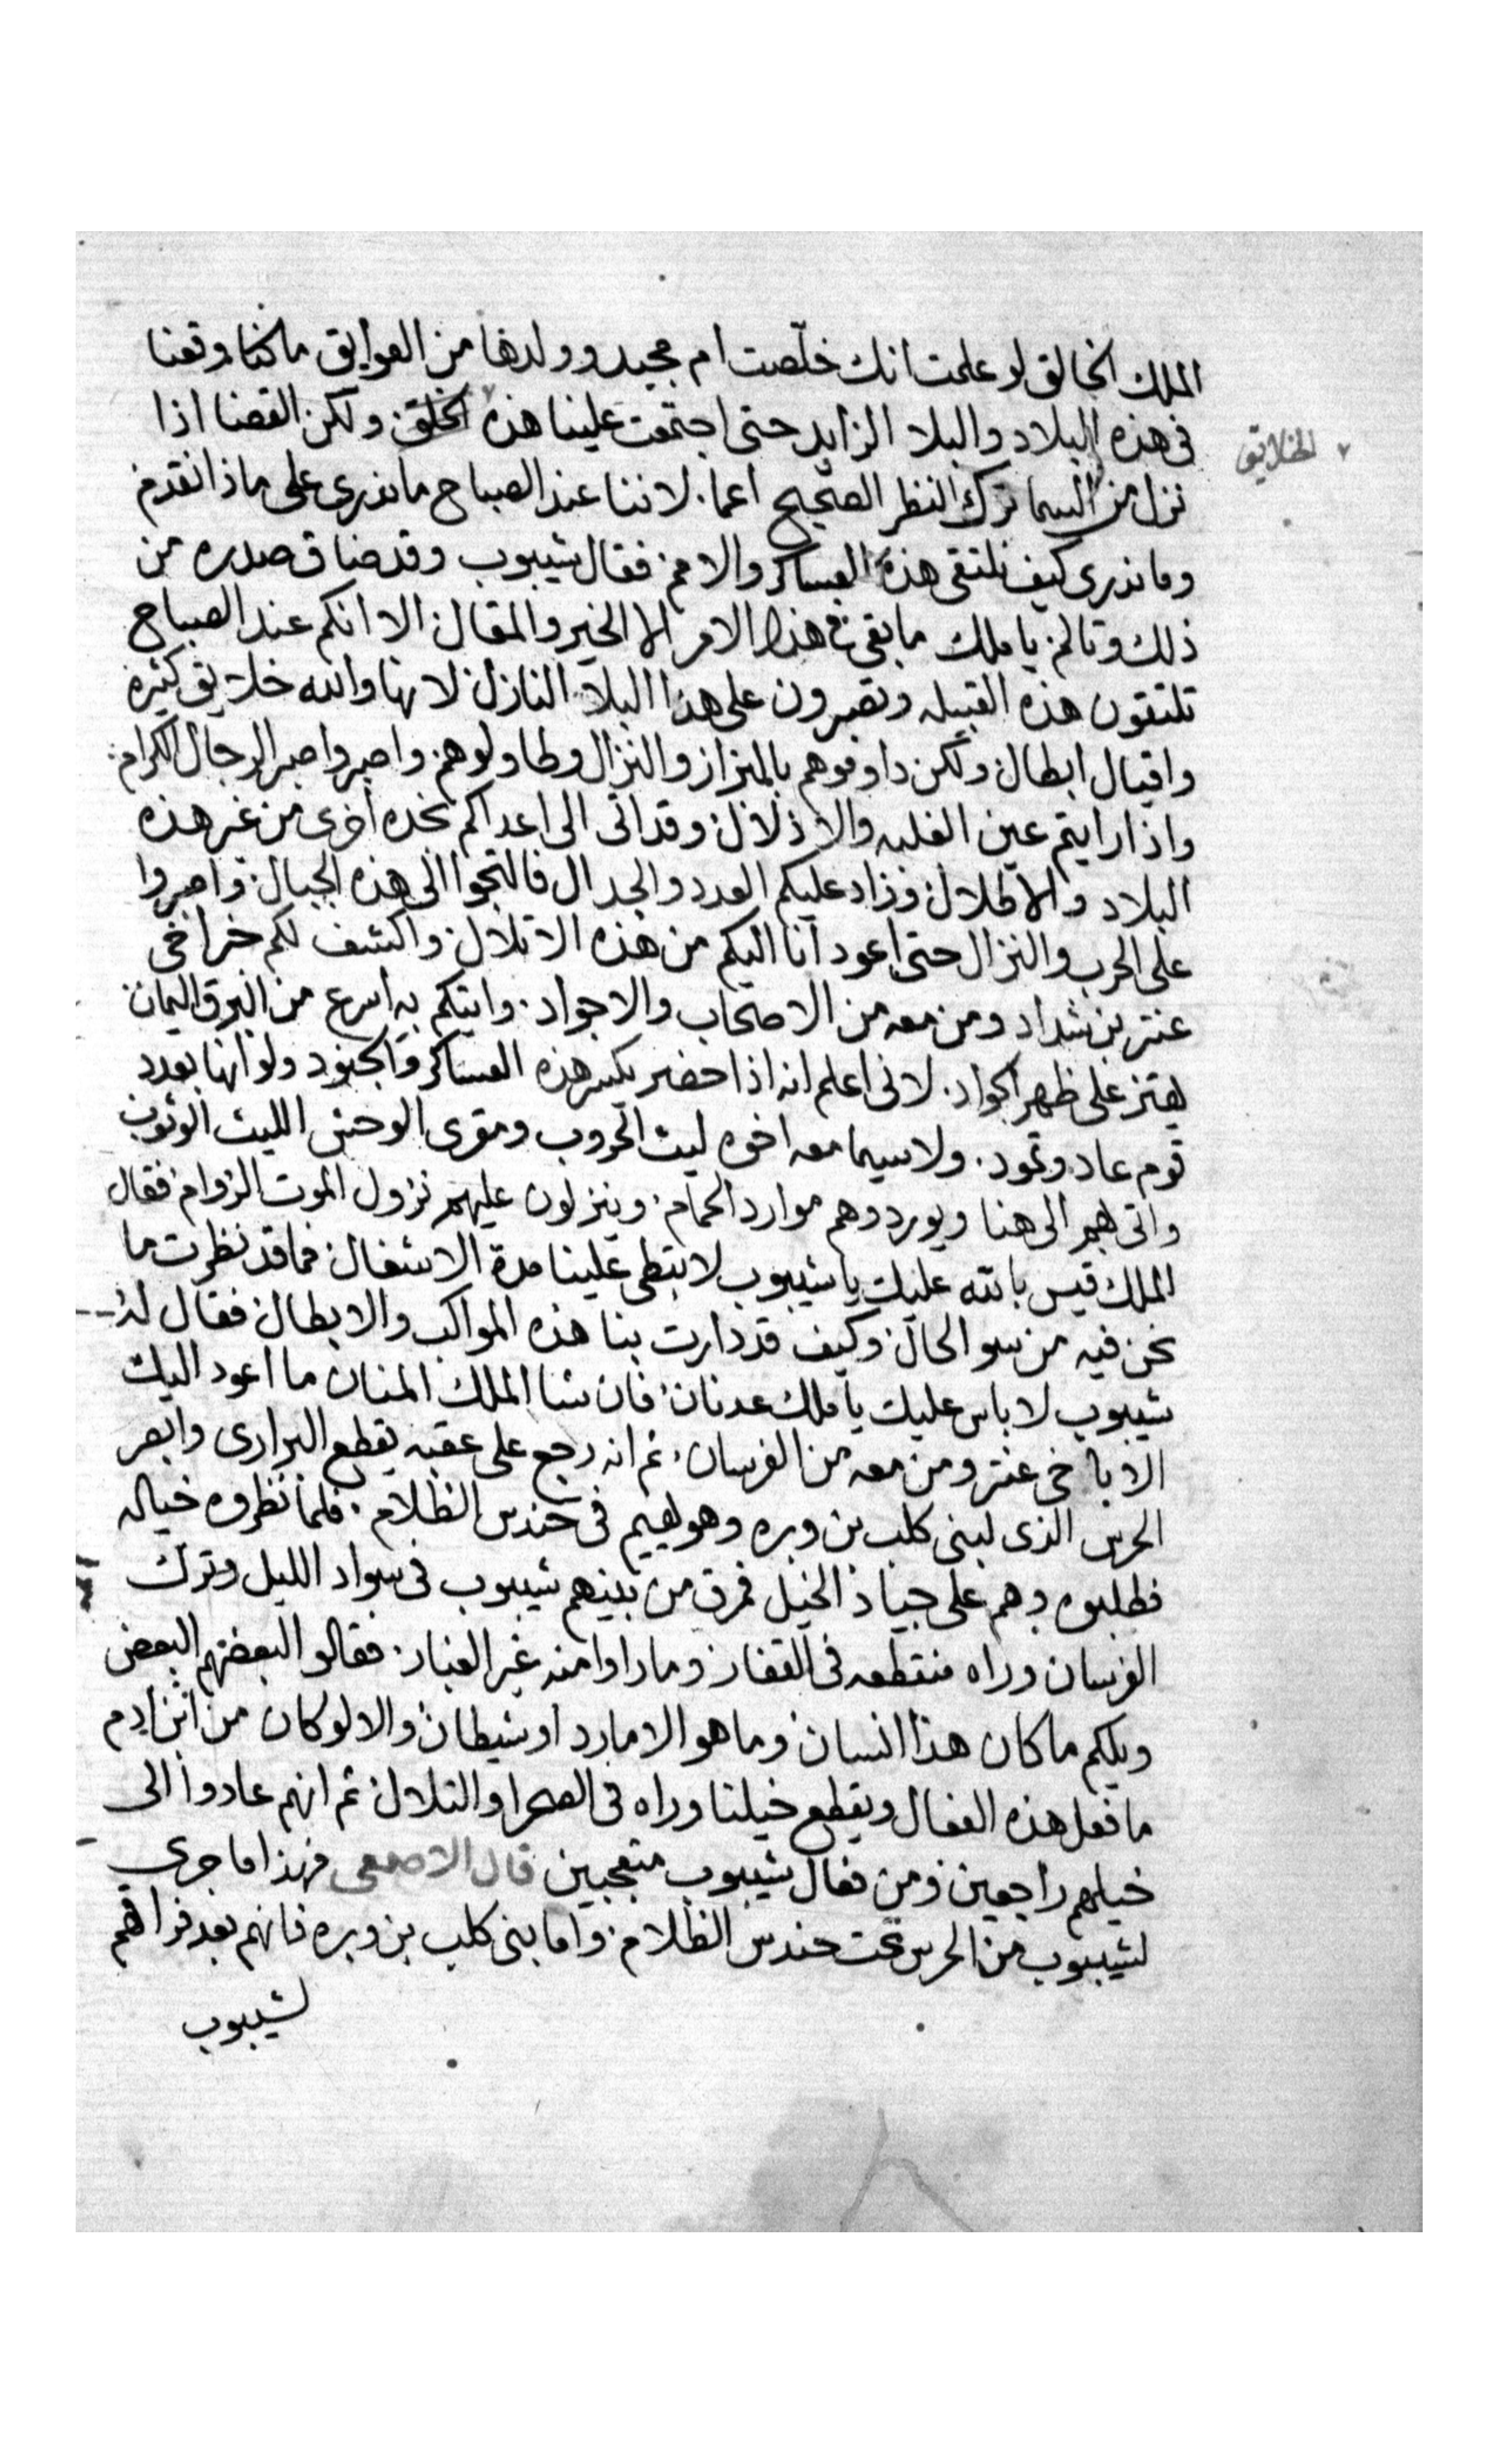 الملك الخالق لو علمت انك خلّصت ام مجيد وولدها من العوايق ماكنا وقعنا
فى هذه البلاد والبلا الزايد حتى اجتمعت علينا هذه الخلق ولكن القضا اذا
الخلايق
نزل من السما ترك النظر الصحيح اعما. لاننا عند الصباح ماندرى على ماذا نقدم
وماندرى كيف نلتقى هذه العساكر والامم فقال شيبوب وقد ضاق صدره من
ذلك وقالم يا ملك ما بقى فى هذا الامر الا الخير والمقال الا انكم عند الصباح
تلتقون هذه القبيله وتصبرون على هذا البلا النازل لانها والله خلايق كثيره
واقيال ابطال ولكن دافعوهم بالبراز والنزال وطاولوهم واصبروا صبر الرجال الكرام
واذا رايتم عين الغلبه والاذلال وقد اتى الى اعداكم نجده اخرى من غير هذه
البلاد والاطلال وزاد عليكم العدد والجدال فالتجوا الى هذه الجبال واصبروا
على الحرب والنزال حتى اعود انا اليكم من هذه الاتلال واكشف لكم خبر اخى
عنتر بن شداد ومن معه من الاصحاب والاجواد. واتيكم به اسرع من البرق اليمان
يهتز على ظهر الجواد. لانى اعلم انه اذا حضر يكسر هذه العساكر والجنود ولو انها بعدد
قوم عاد وثمود. ولاسيما معه اخوه ليث الحروب ومقرى الوحش الليث الوثوب
واتى بهم الى هنا ويوردوهم موارد الحمام وينزلون عليهم نزول الموت الزوام فقال
الملك قيس بالله عليك يا شيبوب لا تبطى علينا مدة الاشغال فما قد نظرت ما
نحن فيه من سو الحال وكيف قد دارت بنا هذه المواكب والابطال فقال له
شيبوب لا باس عليك يا ملك عدنان فان شا الملك المنان ما اعود اليك
الا باخى عنتر ومن معه من الفرسان ثم انه رجع على عقبه يقطع البرارى وابصر
الحرس الذى لبنى كلب بن وبره وهو يهيم فى حندس الظلام. فلما نظروه خياله
فطلبوه وهم على جياد الخيل فمرق من بينهم شيبوب فى سواد الليل وترك
الفرسان وراه منقطعه فى القفار وما راوا منه غير الغبار فقالوا لبعضهم البعض
ويلكم ما كان هذا انسان وما هو الا مارد او شيطان والا لو كان من ابن ادم
ما فعل هذه الفعال ويقطع خيلنا وراه فى الصحرا والتلال ثم انهم عادوا الى
خيلهم راجعين ومن فعال شيبوب متعجبين قال الاصمعى فهذا ما جرى
لشيبوب من الحرس تحت حندس الظلام واما بنى كلب بن وبره فانهم بعد فراقهم
لشيبوب